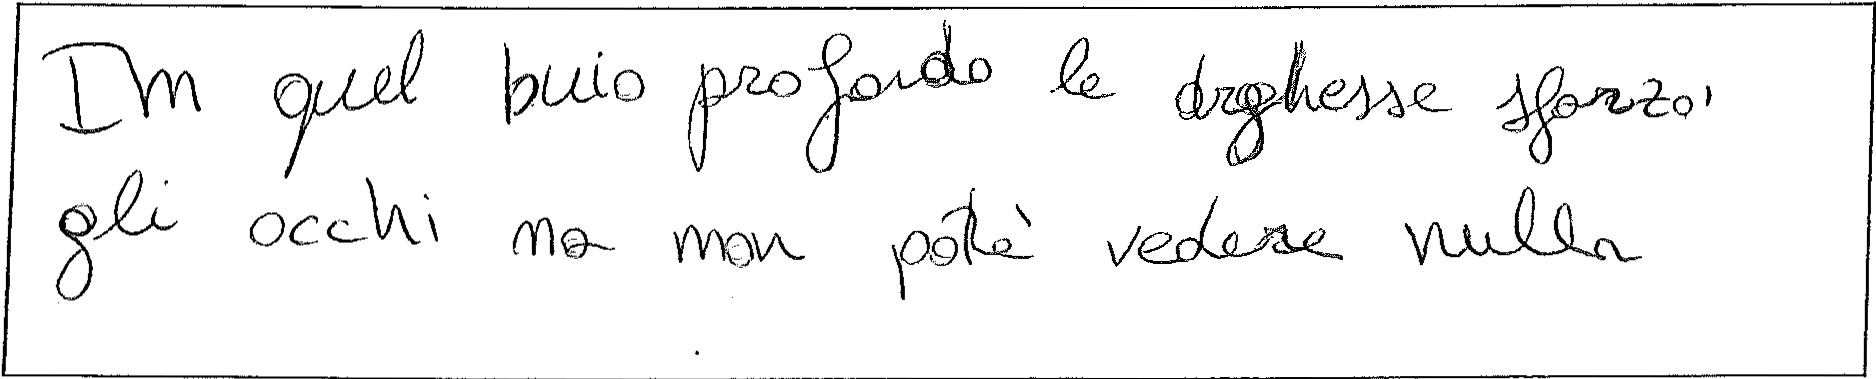 In quel buio profondo le drghesse sforzò
gli occhi ma non potè vedere nulla